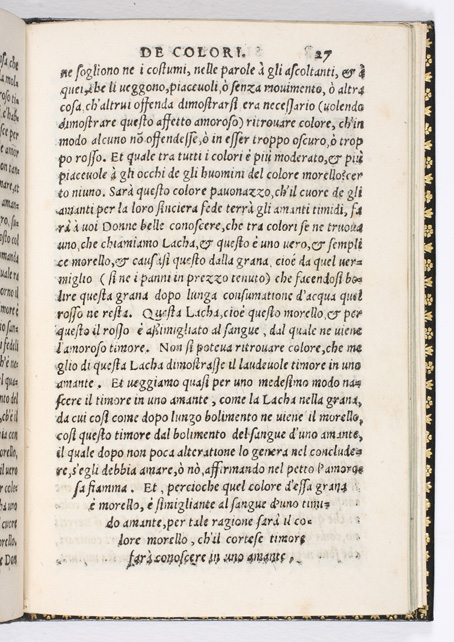 DE COLORI. 27
ne sogliono ne i costumi, nelle parole à gli ascoltanti, & à
quei, che li ueggono, piaceuoli, ò senza mouimento, ò altra
cosa, ch'altrui offenda dimostrarsi era necessario (uolendo
dimostrare questo affetto amoroso) ritrouare colore, ch'in
modo alcuno nõ offendesse, ò in esser troppo oscuro, ò trop
po rosso. Et quale tra tutti i colori è più moderato, & più
piaceuole à gli occhi de gli huomini del colore morello? cer
to niuno. Sarà questo colore pauonazzo, ch'il cuore de gli
amanti per la loro sinciera fede terrà gli amanti timidi, fa
rà à uoi Donne belle conoscere, che tra colori se ne truoua
uno, che chiamiamo Lacha, & questo è uno uero, & sempli
ce morello, & causasi questo dalla grana, cioè da quel uer
miglio ( si ne i panni in prezzo tenuto) che facendosi bo=
lire questa grana dopo lunga consumatione d'acqua quel
rosso ne resta. Questa Lacha, cioè questo morello, & per
questo il rosso è assimigliato al sangue, dal quale ne uiene
l'amoroso timore. Non si poteua ritrouare colore, che me
glio di questa Lacha dimostrasse il laudeuole timore in uno
amante. Et ueggiamo quasi per uno medesimo modo na=
scere il timore in uno amante, come la Lacha nella grana,
da cui così come dopo lungo bolimento ne uiene il morello,
così questo timore dal bolimento del sangue d'uno amante,
il quale dopo non poca alteratione lo genera nel conclude=
re, s'egli debbia amare, ò nò, affirmando nel petto l'amoro=
sa fiamma. Et, percioche quel colore d'essa grana
è morello, è simigliante al sangue d'uno timi=
do amante, per tale ragione sarà il co=
lore morello, ch'il cortese timore
farà conoscere in uno amante.